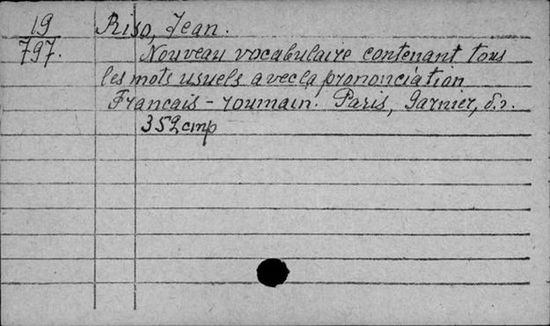 19 Riso, Jean.
797. Nouveau vocabulaire contenant tous
les mots usuels avec la prononciation
Francais - roumain. Paris, Garnier, б.г.
352 стр